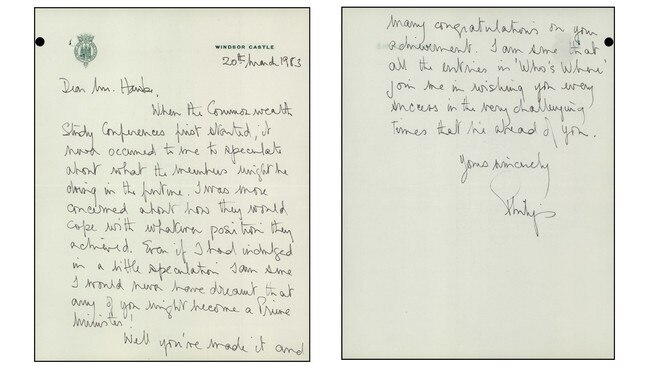 WINDSOR CASTLE
20th March 1983
Dear Mr. Hawke,
When the Commonwealth
Study Conferences first started, it
never occurred to me to speculate
about what the members might be
doing in the future. I was more
concerned about how they would
cope with whatever position they
achieved. Even if I had indulged
in a little speculation I am sure
I would never have dreamt that
any of you might become a Prime
Minister!
Well you've made it and
many congratulations on your
achievement. I am sure that
all the entries in 'Who's Where'
join me in wishing you every
success in the very challenging
times that lie ahead of you.
Yours sincerely
Philip